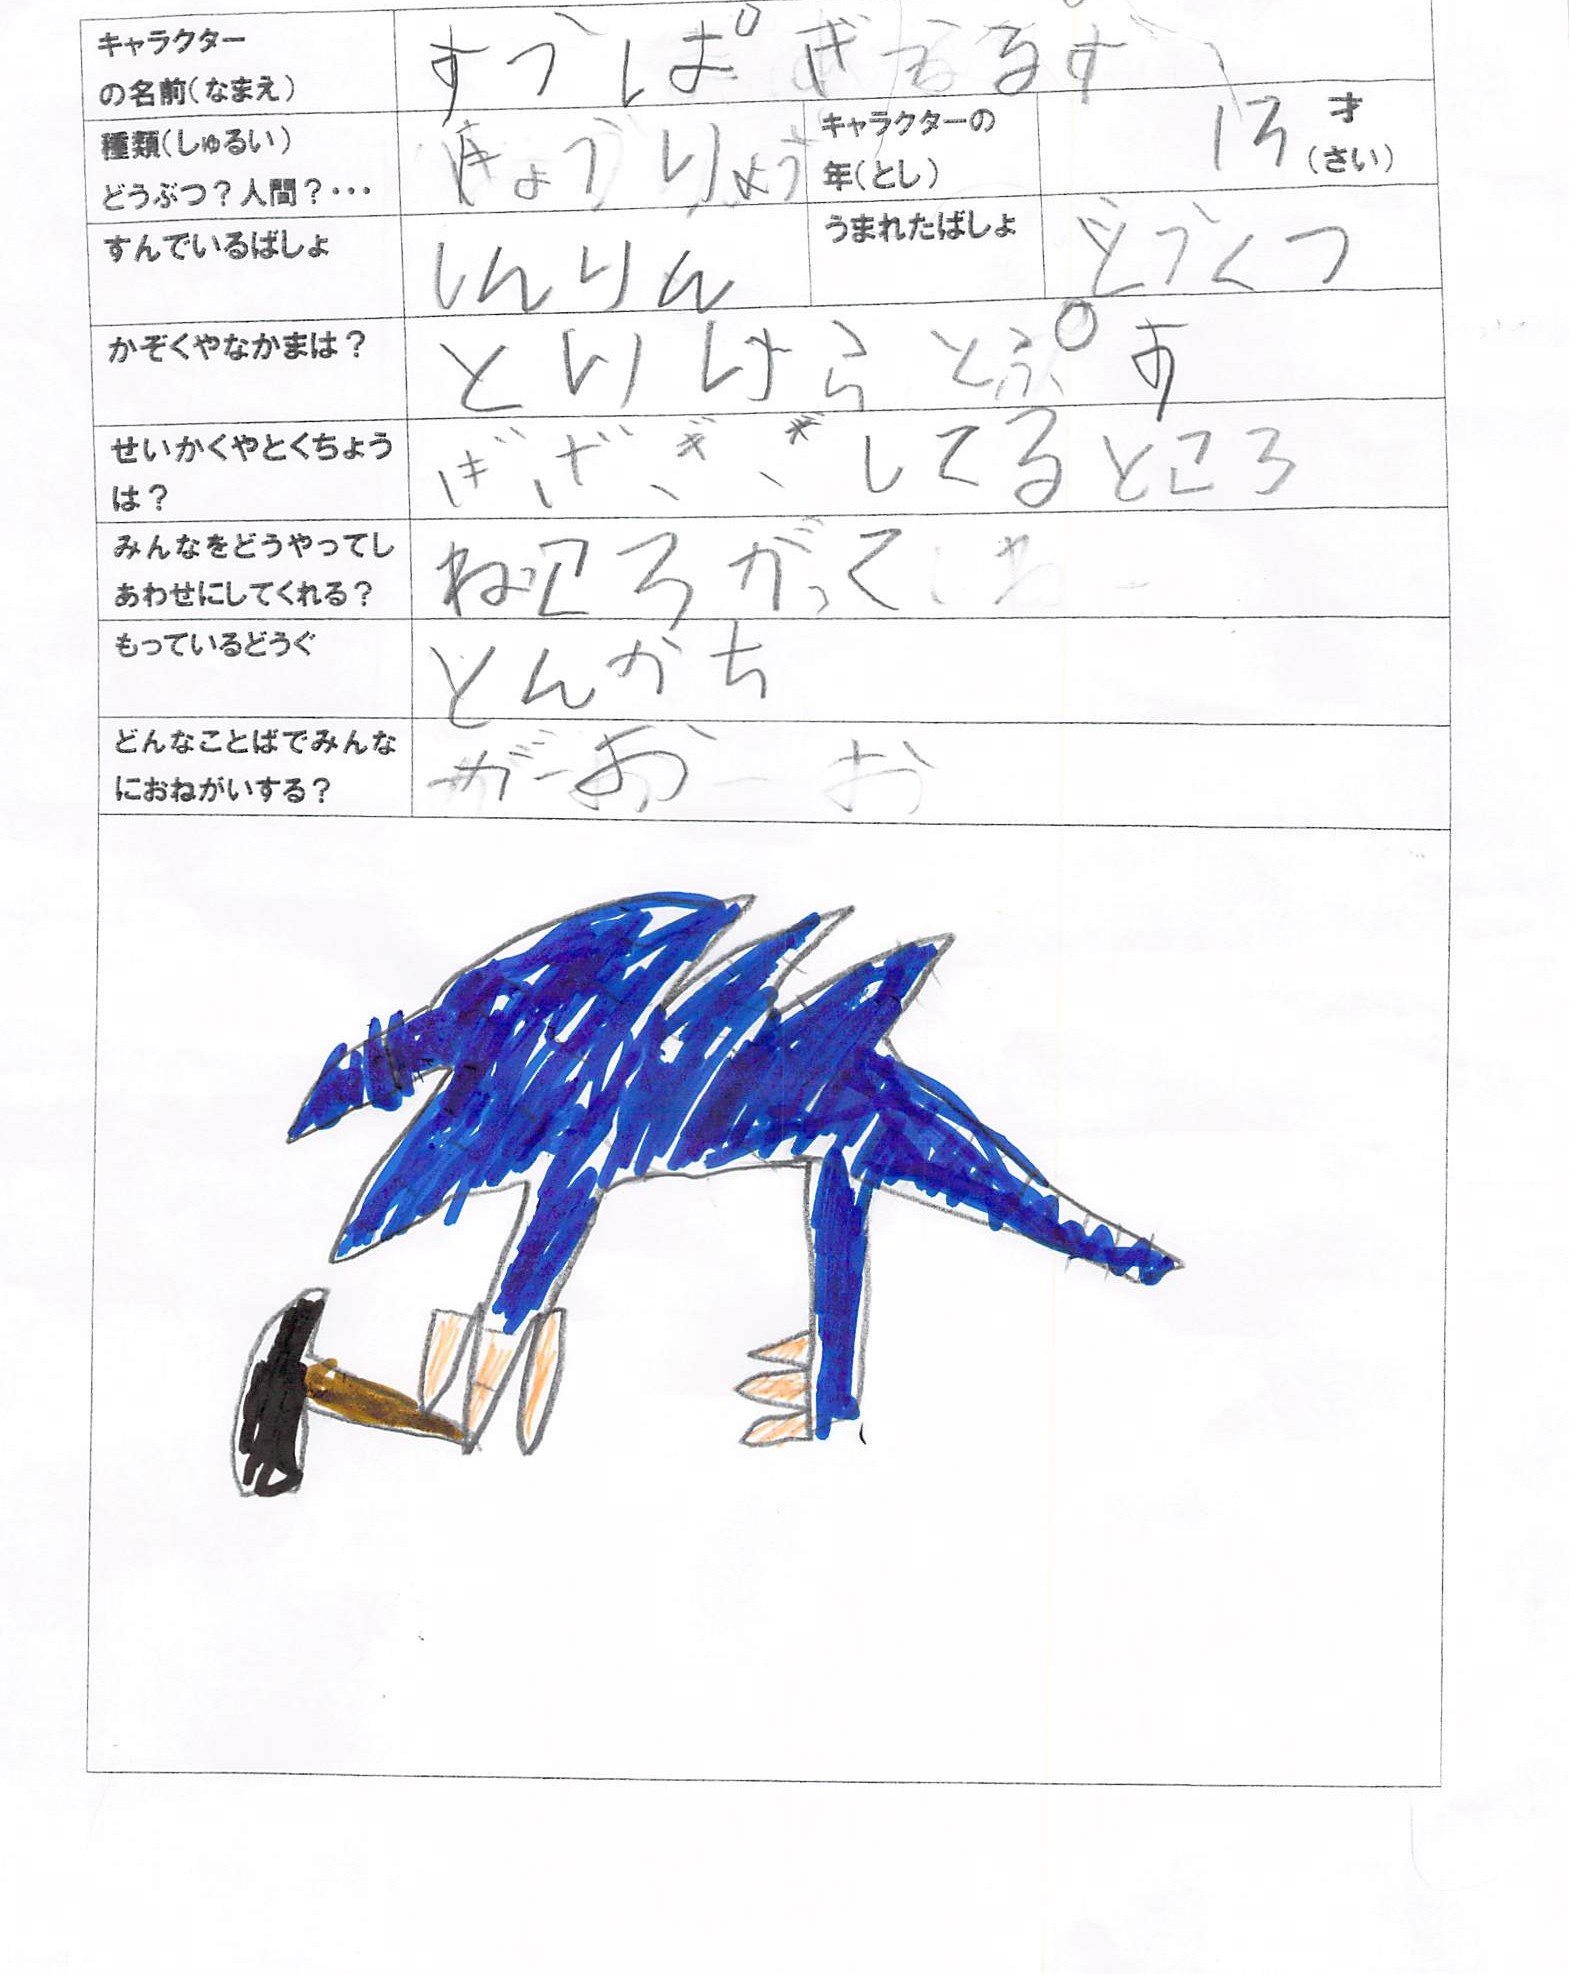 キャラクター
の名前(なまえ)
種類(しゅるい)
どうぶつ?人間?・・・
きょうりゅう
キャラクターの
年(とし)
13才
(さい)
すんでいるばしょ
しんりん
うまれたばしょ
どうくつ
かぞくやなかまは?
とりけらとぷす
せいかくやとくちょう
は?
ぎざぎざしてるところ
みんなをどうやってし
あわせにしてくれる?
ねころがって
もっているどうぐ
とんかち
どんなことばでみんな
におねがいする?
がーおー